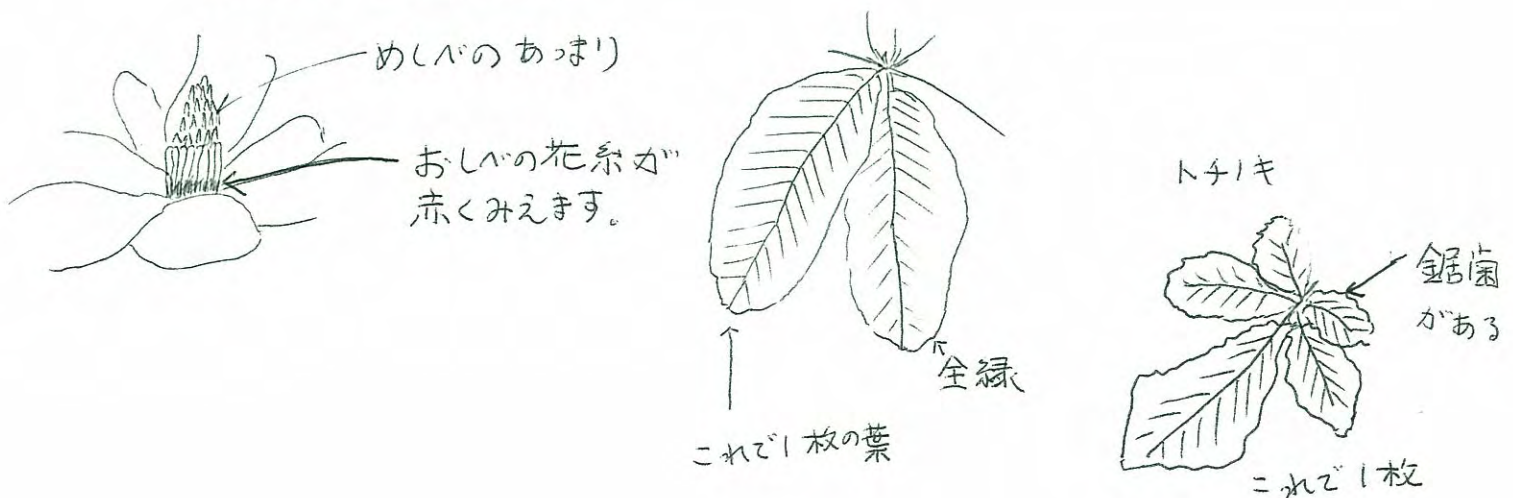 めしべのあつまり
おしべの花糸が
赤くみえます。
全縁
これで1枚の葉
トチノキ
鋸歯
がある
これで1枚